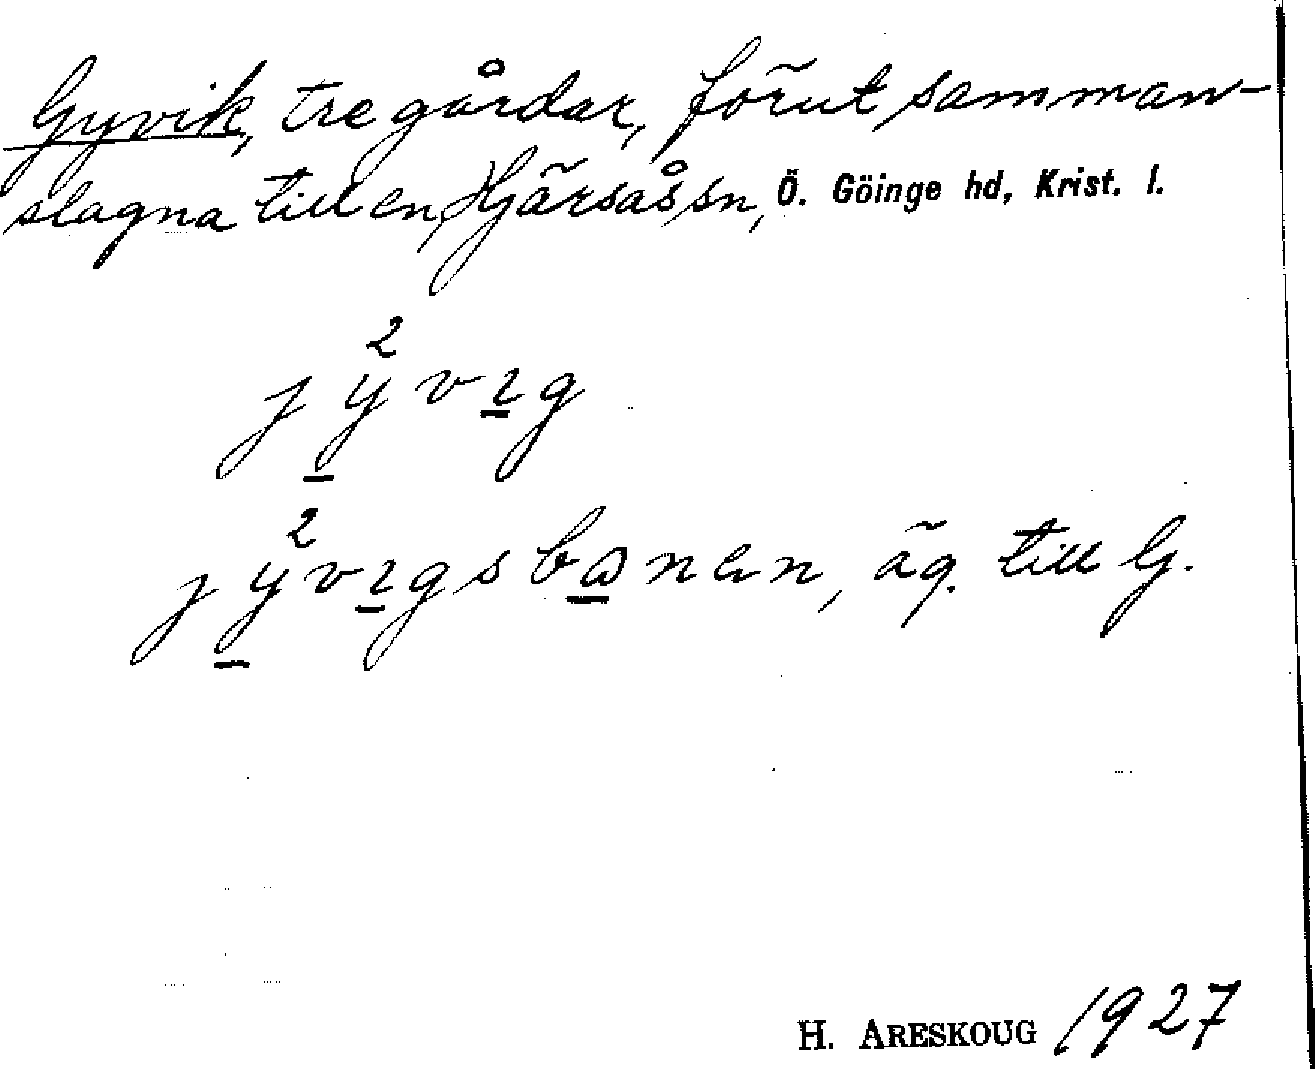 Gyvik, tre gårdar, förut samman-
slagna till en, Hjärsås sn, Ö. Göinge hd, Krist. l.
jy̲²vı̲g
jy̲²vı̲gsbɷ̲nen, äg. till G.
H. ARESKOUG 1927